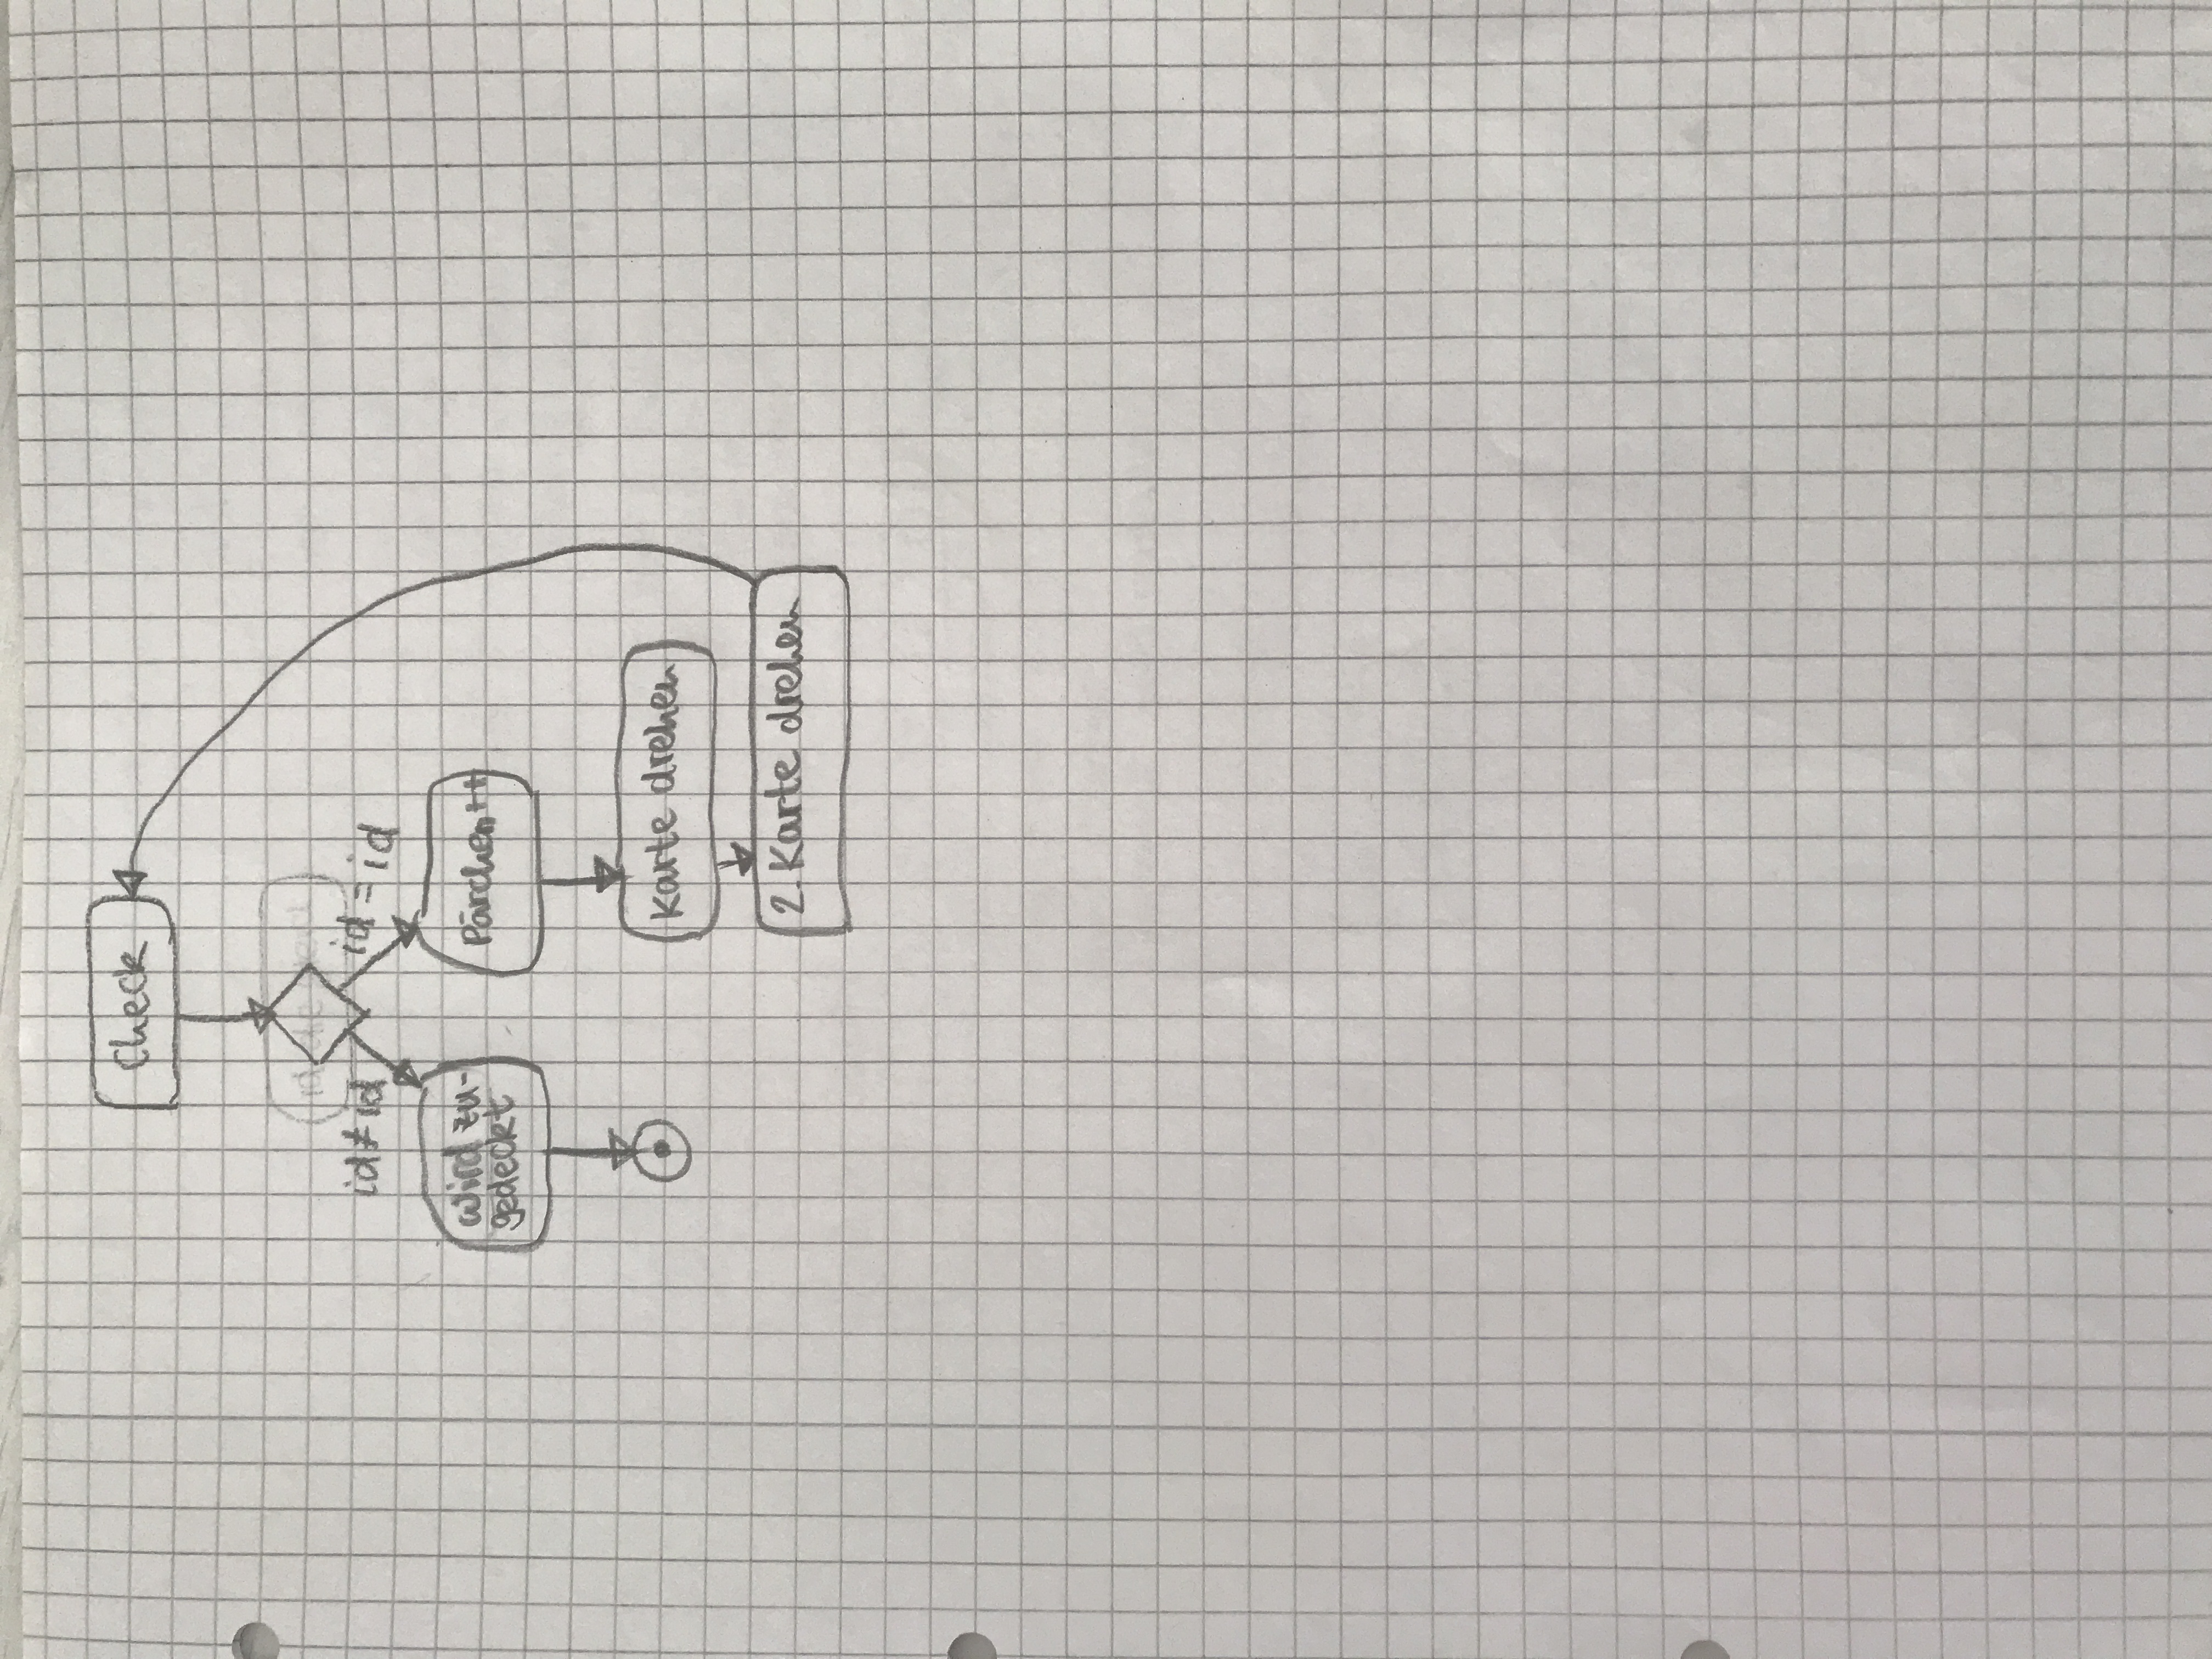 Check
id≠id
id=id
wird zu-
gedeckt
Pärchen++
Karte drehen
2. Karte drehen